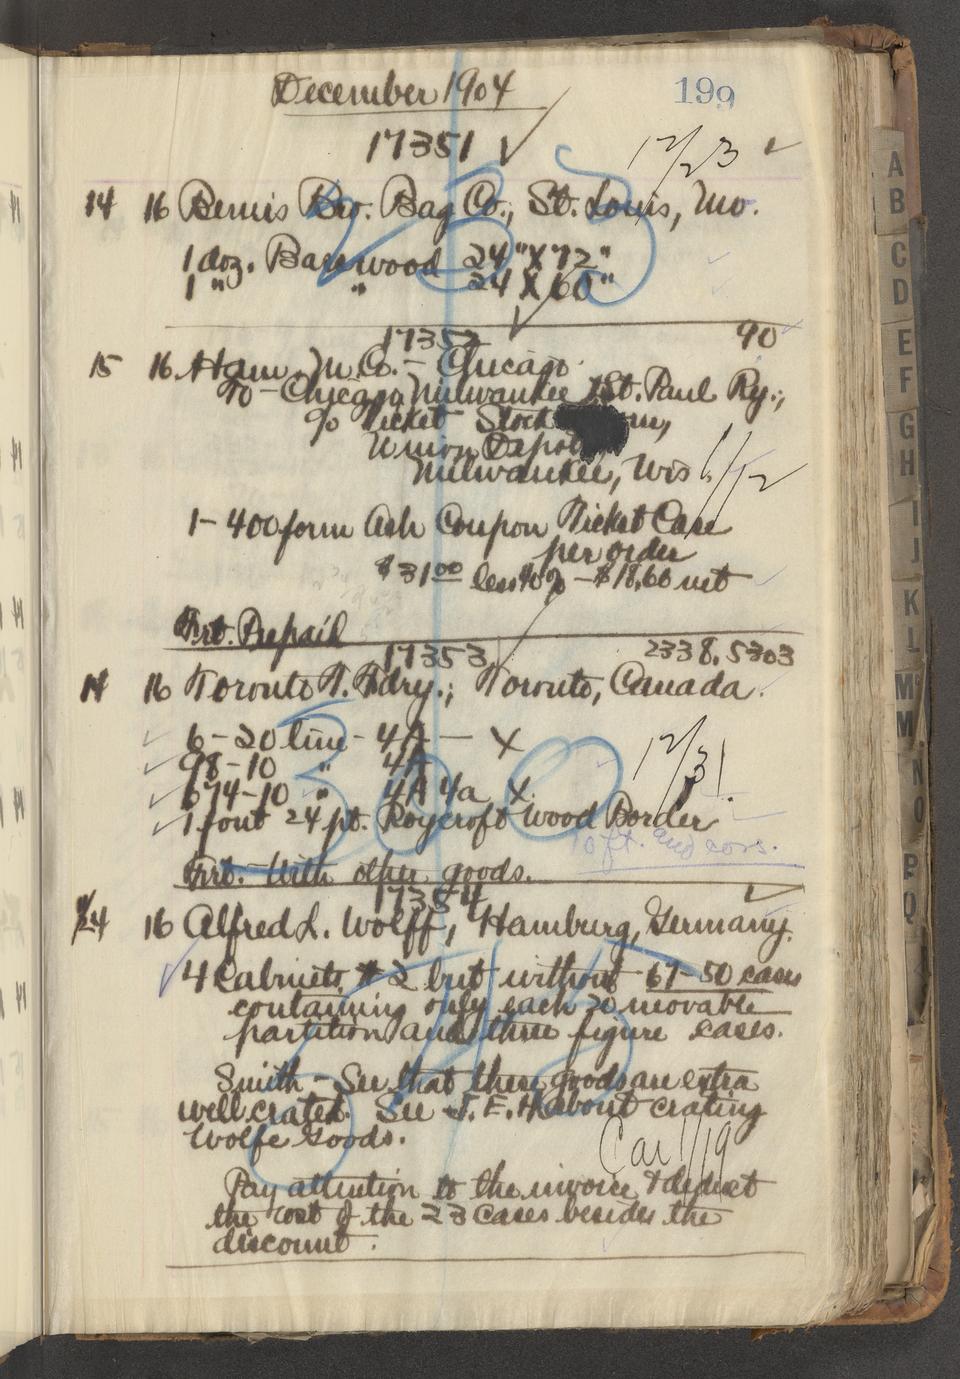 December 1904
199
17351 ✓
12/23 ✓
14 16 Bemis Bro. Bag Co., St. Louis, Mo.
1 doz. Basswood 24" X 72"
1 " " 24 X 60"
17352
90
15 16 Ham. M. Co. - Chicago
To - Chicago, Milwaukee & St. Paul Ry.,
c/o Ticket Stock
Union Depot
Milwaukee, Wis.
1/12
1 - 400 form Ash Coupon Ticket Case
per order
$31.00 less 40% - $18.60 net
Frt. Prepaid
17353
2338, 5303
14 16 Toronto T. Fdry.; Toronto, Canada.
6 - 20 line - 4A — X
98 - 10 " 4A
674 - 10 " 4A 4a X
12/31.
1 font 24 pt. Roycroft Wood Border
10 ft. and cors.
Frt. With other goods.
17354
24 16 Alfred L. Wolff, Hamburg, Germany.
4 Cabinets # 2 but without 67 - 50 cases
containing only each 20 movable
partition and three figure cases.
Smith - See that these goods are extra
well crated. See J. E. H. about crating
Wolfe Goods.
Car 1/19
Pay attention to the invoice & deduct
the cost of the 23 cases besides the
discount.
A
B
C
D
E
F
G
H
I
J
K
L
Mc
M
N
O
P
Q